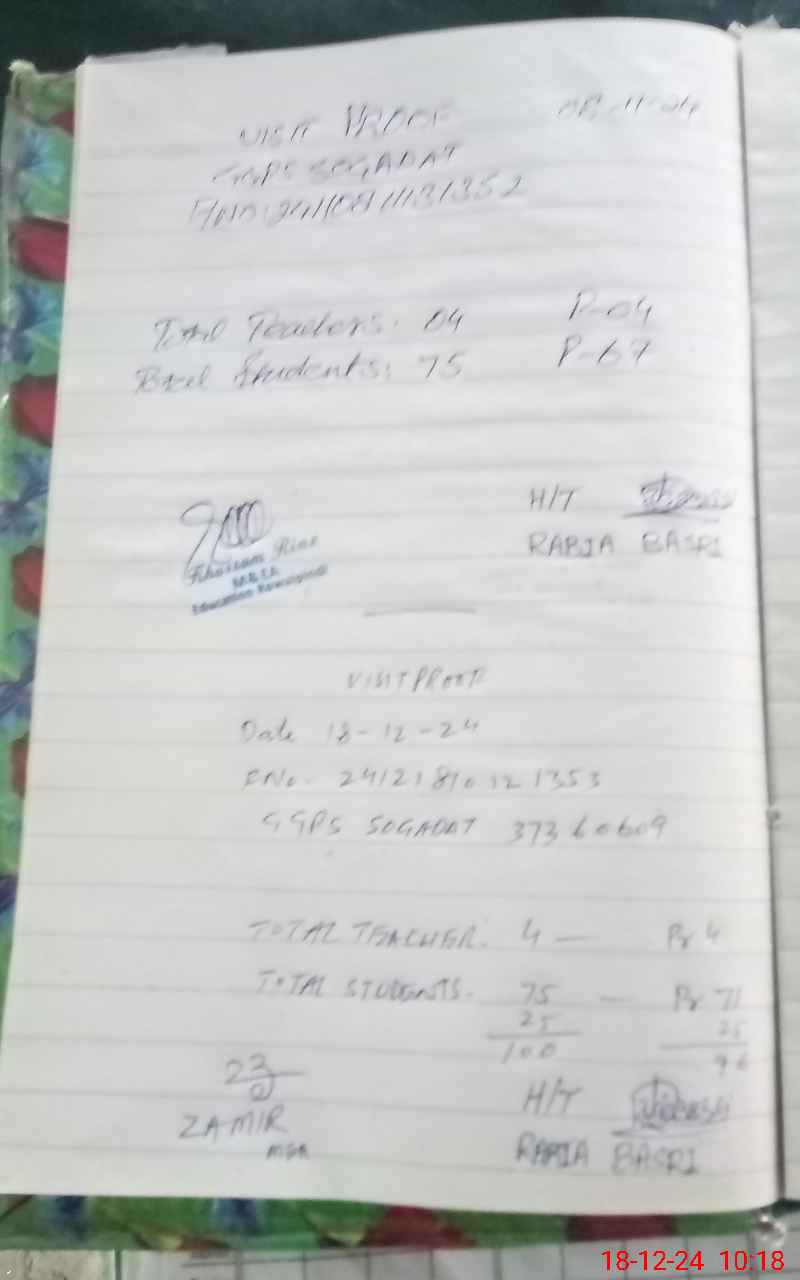 VISIT PROOF 08-11-24
GGPS SOGADAT
Total Teachers: 04 P-04
Total Students: 75 P-67
H/T
RABIA BASRI
Khurram Riaz
M.&.E.A
Education Rawalpindi
VISIT PROOF
Date 18-12-24
FNo. 24121810121353
GGPS SOGADAT 37360609
TOTAL TEACHER. 4 — Pr 4
TOTAL STUDENTS. 75 — Pr 71
25 25
100 96
H/T
ZAMIR
MEA
RABIA BASRI
18-12-24 10:18